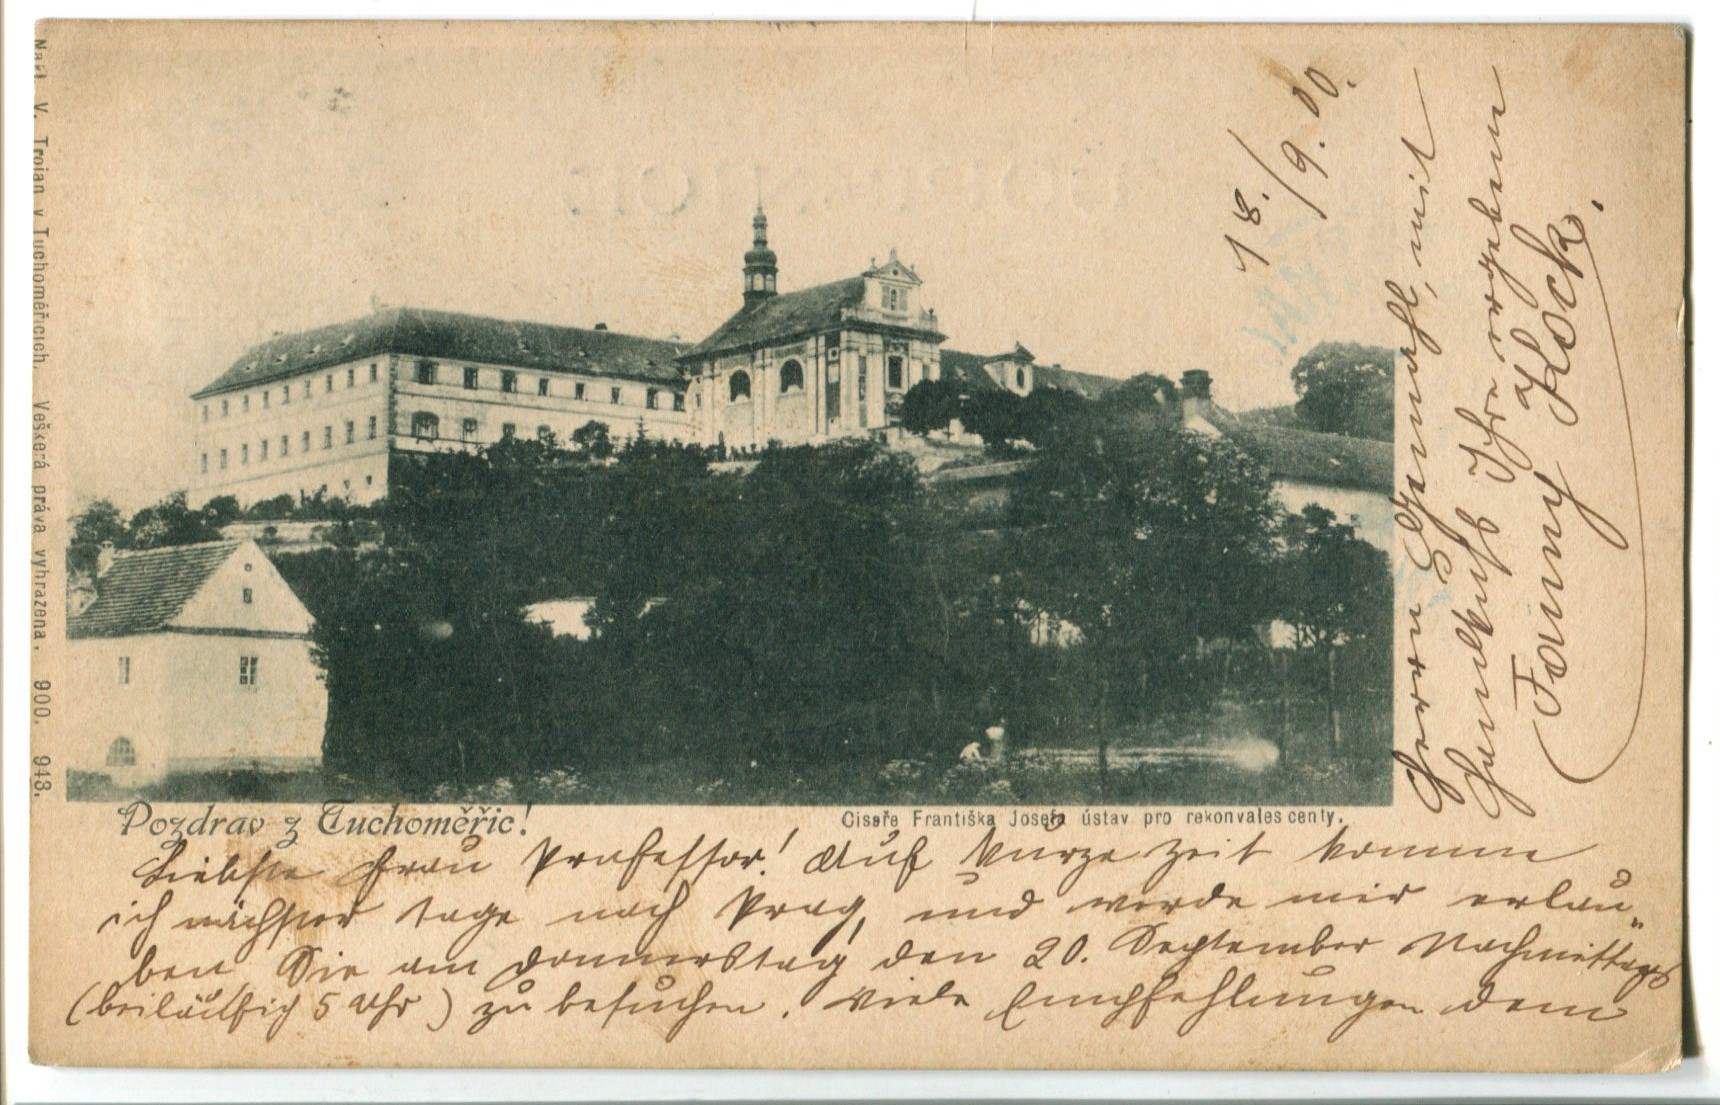 Nakl. V. Trojan v Tuchoměřicích. Veškerá práva vyhrazena. 900. 948.
Pozdrav z Tuchoměřic!
Císaře Františka Josefa ústav pro rekonvalescenty.
18./9.00.
Liebste Frau Professor! Auf kurze Zeit komme
ich nächster Tage nach Prag, und werde mir erlau-
ben Sie am Donnerstag den 20. September Nachmittags
(beiläufig 5 Uhr) zu besuchen. Viele Empfehlungen dem
Herrn Gemahl, mit
Handkuß Ihre ergebene
Fanny Kock.